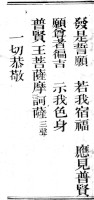 發是誓願　若我宿福　應見普賢
願尊者徧吉　示我色身
普賢王菩薩摩訶薩三聲
一切恭敬